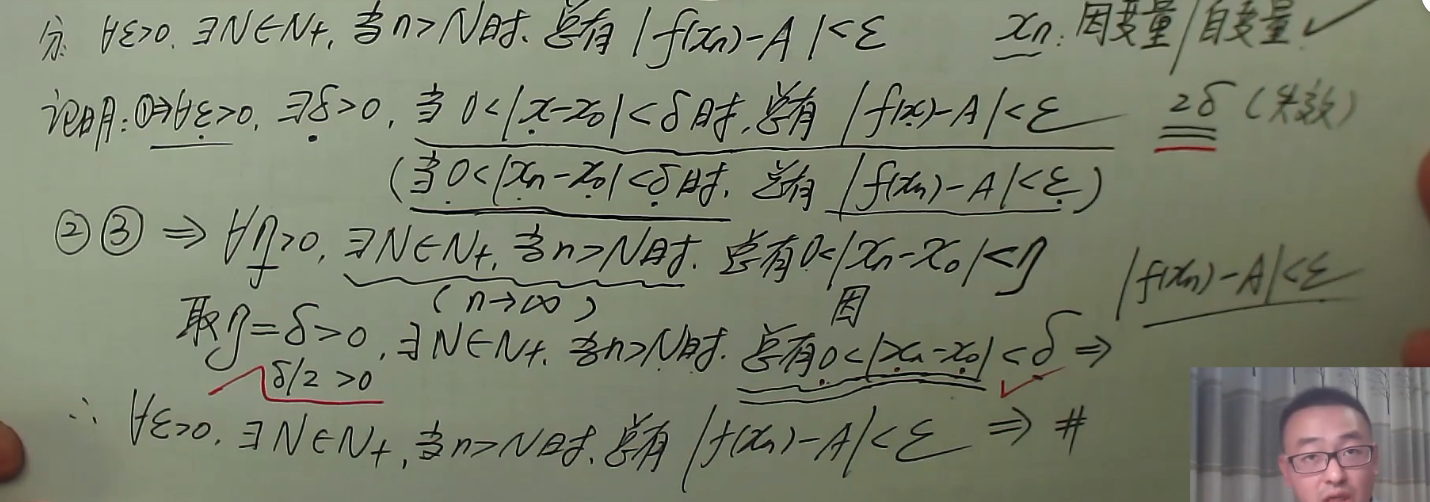 亦 ∀ε>0. ∃N∈N+, 当n>N时. 总有 |f(xn)-A|<ε xn: 因变量/自变量 ✓
证明: ①⇒∀ε>0, ∃δ>0, 当 0<|x-x0|<δ时, 总有 |f(x)-A|<ε 2δ (失效)
(当 0<|xn-x0|<δ时. 总有 |f(xn)-A|<ε)
②③ ⇒ ∀η>0, ∃N∈N+, 当n>N时. 总有0<|xn-x0|<η
(n→∞) 因 |f(xn)-A|<ε
取η=δ>0, ∃N∈N+. 当n>N时. 总有0<|xn-x0|<δ ⇒
δ/2 >0 ✓
∴ ∀ε>0. ∃N∈N+, 当n>N时. 总有 |f(xn)-A|<ε ⇒ #